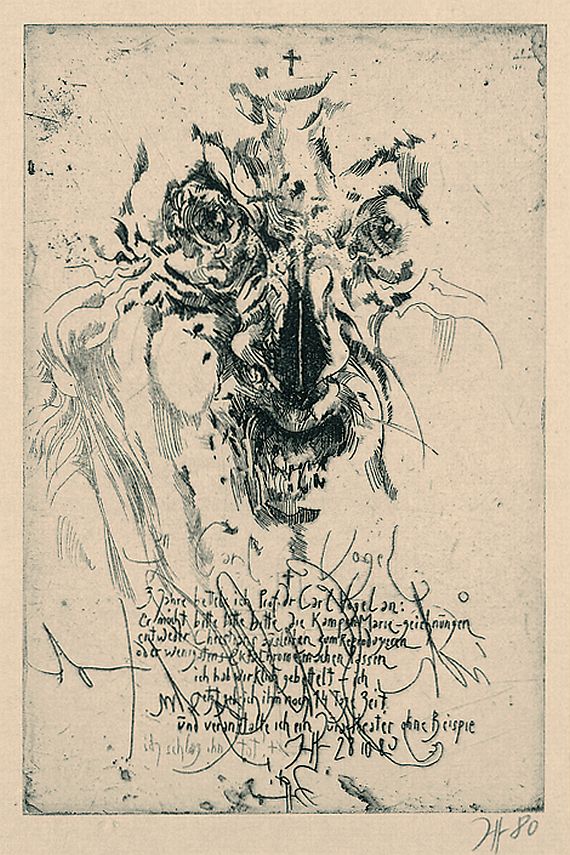 Carl Vogel
3 Jahre bettle ich Prof Dr Carl Vogel an:
Er möcht bitte bitte bitte die Kampen Marie-zeichnungen
entweder Christians ausleihen zum Reproduzieren
oder wenigstens Ektachrome machen lassen
ich hab wirklich gebettelt – ich
jetzt geb ich ihm noch 14 Tge Zeit
und veranstalte ich ein theater ohne Beispie
ich schlag ihn tot
HH 28 10 80
HH 80